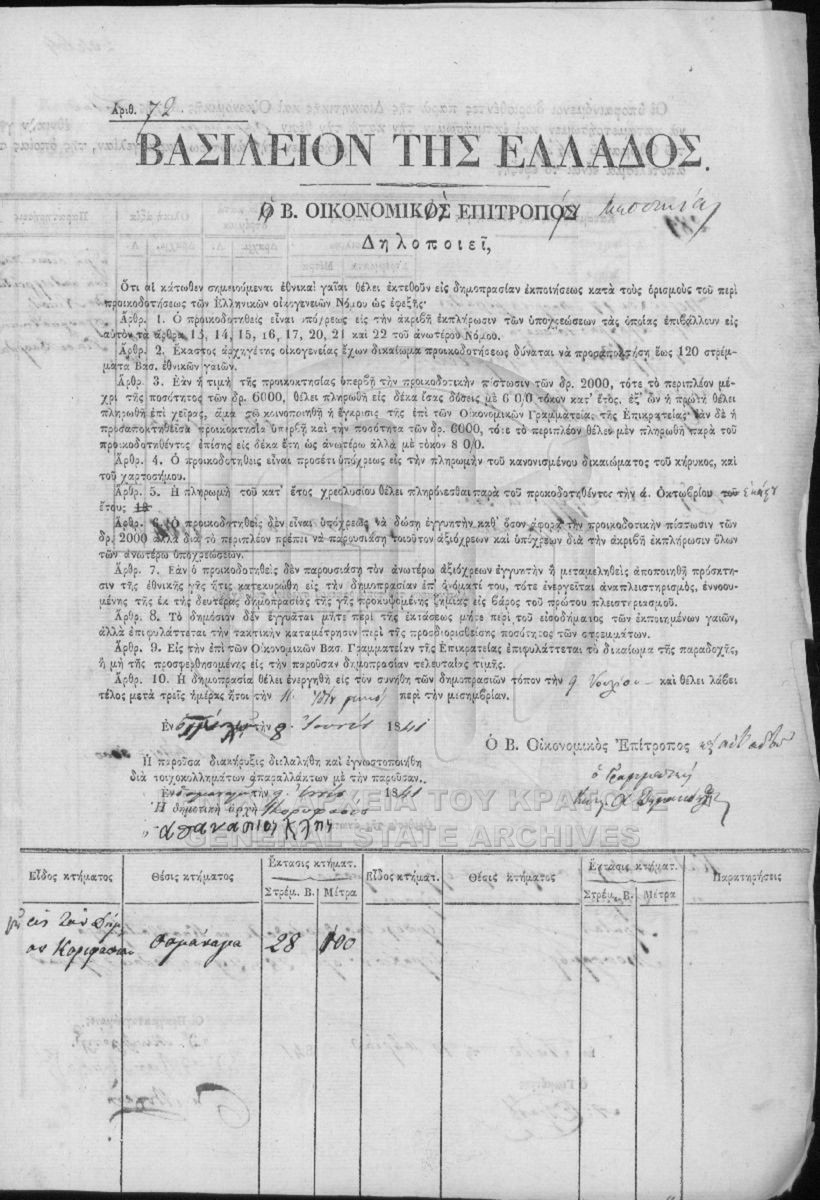 Ἀριθ. 72.
ΒΑΣΙΛΕΙΟΝ ΤΗΣ ΕΛΛΑΔΟΣ.
Ὁ Β. ΟΙΚΟΝΟΜΙΚΟΣ ΕΠΙΤΡΟΠΟΣ
Δηλοποιεῖ,
Ὅτι αἱ κάτωθεν σημειούμεναι ἐθνικαὶ γαῖαι θέλει ἐκτεθοῦν εἰς δημοπρασίαν ἐκποιήσεως κατὰ τοὺς ὁρισμοὺς τοῦ περὶ
προικοδοτήσεως τῶν Ἑλληνικῶν οἰκογενειῶν Νόμου ὡς ἐφεξῆς·
Ἄρθρ. 1. Ὁ προικοδοτηθεὶς εἶναι ὑπόχρεως εἰς τὴν ἀκριβῆ ἐκπλήρωσιν τῶν ὑποχρεώσεων τὰς ὁποίας ἐπιβάλλουν εἰς
αὐτὸν τὰ ἄρθρα 13, 14, 15, 16, 17, 20, 21 καὶ 22 τοῦ ἀνωτέρω Νόμου.
Ἄρθρ. 2. Ἕκαστος ἀρχηγέτης οἰκογενείας ἔχων δικαίωμα προικοδοτήσεως δύναται νὰ προσαποκτήσῃ ἕως 120 στρέμ-
ματα Βασ. ἐθνικῶν γαιῶν.
Ἄρθρ. 3. Ἐὰν ἡ τιμὴ τῆς προικοκτησίας ὑπερβῇ τὴν προικοδοτικὴν πίστωσιν τῶν δρ. 2000, τότε τὸ περιπλέον μέ-
χρι τῆς ποσότητος τῶν δρ. 6000, θέλει πληρωθῆ εἰς δέκα ἴσας δόσεις μὲ 6 0/0 τόκον κατ' ἔτος, ἐξ' ὧν ἡ πρώτη θέλει
πληρωθῆ ἐπὶ χεῖρας, ἅμα σῷ κοινοποιηθῇ ἡ ἔγκρισις τῆς ἐπὶ τῶν Οἰκονομικῶν Γραμματείας τῆς Ἐπικρατείας· ἐὰν δὲ ἡ
προσαποκτηθεῖσα προικοκτησία ὑπερβῇ καὶ τὴν ποσότητα τῶν δρ. 6000, τότε τὸ περιπλέον θέλει μὲν πληρωθῆ παρὰ τοῦ
προικοδοτηθέντος ἐπίσης εἰς δέκα ἔτη ὡς ἀνωτέρω ἀλλὰ μὲ τόκον 8 0/0.
Ἄρθρ. 4. Ὁ προικοδοτηθεὶς εἶναι προσέτι ὑπόχρεως εἰς τὴν πληρωμὴν τοῦ κανονισμένου δικαιώματος τοῦ κήρυκος, καὶ
τοῦ χαρτοσήμου.
Ἄρθρ. 5. Ἡ πληρωμὴ τοῦ κατ' ἔτος χρεολυσίου θέλει πληρόνεσθαι παρὰ τοῦ προκοδοτηθέντος τὴν ά. Ὀκτωβρίου τοῦ ἑκάστου
ἔτους 18
Ἄρθρ. 6. Ὁ προικοδοτηθεὶς δὲν εἶναι ὑπόχρεως νὰ δώσῃ ἐγγυητὴν καθ' ὅσον ἀφορᾷ τὴν προικοδοτικὴν πίστωσιν τῶν
δρ. 2000 ἀλλὰ διὰ τὸ περιπλέον πρέπει νὰ παρουσιάσῃ τοιοῦτον ἀξιόχρεων καὶ ὑπόχρεων διὰ τὴν ἀκριβῆ ἐκπλήρωσιν ὅλων
τῶν ἀνωτέρω ὑποχρεώσεων.
Ἄρθρ. 7. Ἐὰν ὁ προικοδοτηθεὶς δὲν παρουσιάσῃ τὸν ἀνωτέρω ἀξιόχρεων ἐγγυητὴν ἢ μεταμεληθεὶς ἀποποιηθῇ πρόσκτη-
σιν τῆς ἐθνικῆς γῆς ἥτις κατεκυρώθη εἰς τὴν δημοπρασίαν ἐπ' ὀνόματί του, τότε ἐνεργεῖται ἀναπλειστηρισμὸς, ἐννοου-
μένης τῆς ἐκ τῆς δευτέρας δημοπρασίας τῆς γῆς προκυψομένης ζημίας εἰς βάρος τοῦ πρώτου πλειστηριασμοῦ.
Ἄρθρ. 8. Τὸ δημόσιον δὲν ἐγγυᾶται μήτε περὶ τῆς ἐκτάσεως μήτε περὶ τοῦ εἰσοδήματος τῶν ἐκποιημένων γαιῶν,
ἀλλὰ ἐπιφυλάττεται τὴν τακτικὴν καταμέτρησιν περὶ τῆς προσδιορισθείσης ποσότητος τῶν στρεμμάτων.
Ἄρθρ. 9. Εἰς τὴν ἐπὶ τῶν Οἰκονομικῶν Βασ. Γραμματείαν τῆς Ἐπικρατείας ἐπιφυλάττεται τὸ δικαίωμα τῆς παραδοχῆς,
ἢ μὴ τῆς προσφερθησομένης εἰς τὴν παροῦσαν δημοπρασίαν τελευταίας τιμῆς.
Ἄρθρ. 10. Ἡ δημοπρασία θέλει ἐνεργηθῆ εἰς τὸν συνήθη τῶν δημοπρασιῶν τόπον τὴν 9 Ἰουλίου καὶ θέλει λάβει
τέλος μετὰ τρεῖς ἡμέρας ἤτοι τὴν 11 περὶ τὴν μεσημβρίαν.
Ἐν τὴν 9 Ἰουνίου 1841
Ὁ Β. Οἰκονομικὸς Ἐπίτροπος
Ἡ παροῦσα διακήρυξις διελαλήθη καὶ ἐγνωστοποιήθη
διὰ τοιχοκολλημάτων ἀπαραλλάκτων μὲ τὴν παροῦσαν.
ὁ Γραμματεὺς
Ἐν τὴν 9 1841
Ἡ δημοτικὴ ἀρχὴ Κορυφασίου
ΓΕΝΙΚΑ ΑΡΧΕΙΑ ΤΟΥ ΚΡΑΤΟΥΣ
GENERAL STATE ARCHIVES
Εἶδος κτήματος Θέσις κτήματος Ἔκτασις κτήματ. Εἶδος κτήματ. Θέσις κτήματος Ἔκτασις κτήματ. Παρατηρήσεις
Στρέμ. Β. Μέτρα Στρέμ. Β. Μέτρα
γῆ εἰς τὸν δῆμ
ον Κορυφασίου 28 100